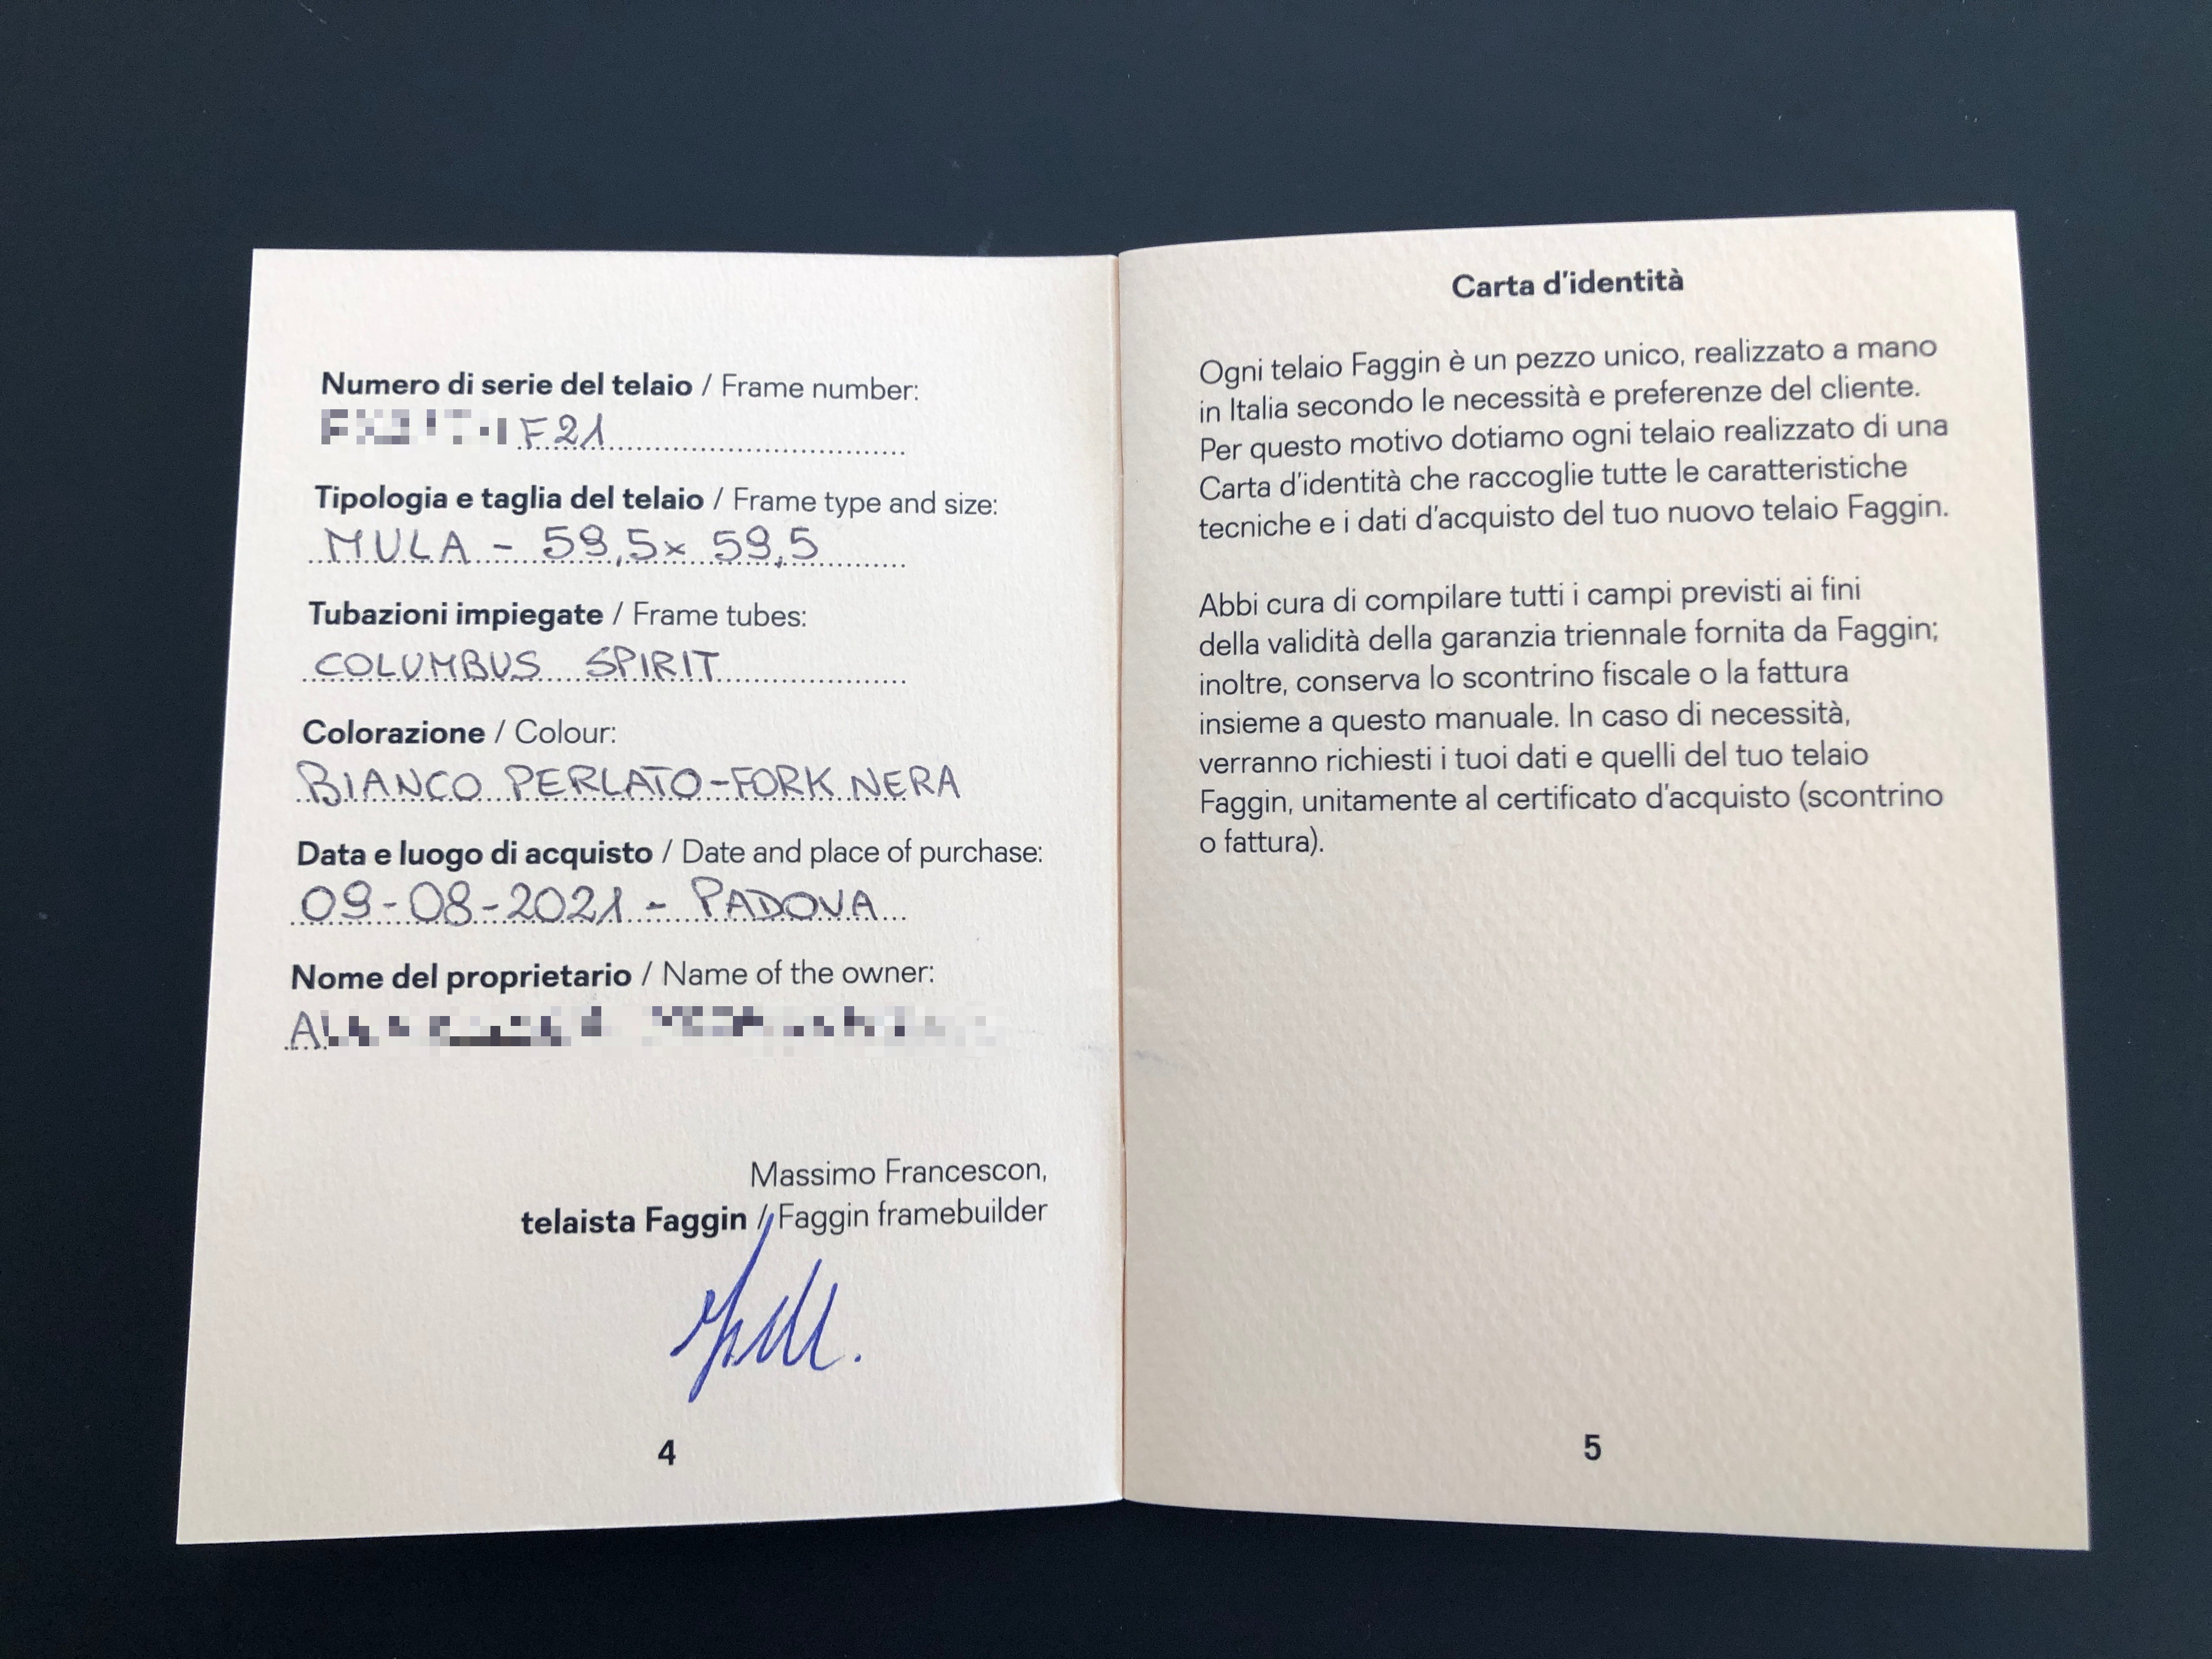 Numero di serie del telaio / Frame number:
F21
Tipologia e taglia del telaio / Frame type and size:
MULA - 59,5x 59,5
Tubazioni impiegate / Frame tubes:
COLUMBUS SPIRIT
Colorazione / Colour:
BIANCO PERLATO-FORK NERA
Data e luogo di acquisto / Date and place of purchase:
09-08-2021 - PADOVA
Nome del proprietario / Name of the owner:
Massimo Francescon,
telaista Faggin / Faggin framebuilder
4
Carta d'identità
Ogni telaio Faggin è un pezzo unico, realizzato a mano
in Italia secondo le necessità e preferenze del cliente.
Per questo motivo dotiamo ogni telaio realizzato di una
Carta d'identità che raccoglie tutte le caratteristiche
tecniche e i dati d'acquisto del tuo nuovo telaio Faggin.
Abbi cura di compilare tutti i campi previsti ai fini
della validità della garanzia triennale fornita da Faggin;
inoltre, conserva lo scontrino fiscale o la fattura
insieme a questo manuale. In caso di necessità,
verranno richiesti i tuoi dati e quelli del tuo telaio
Faggin, unitamente al certificato d'acquisto (scontrino
o fattura).
5